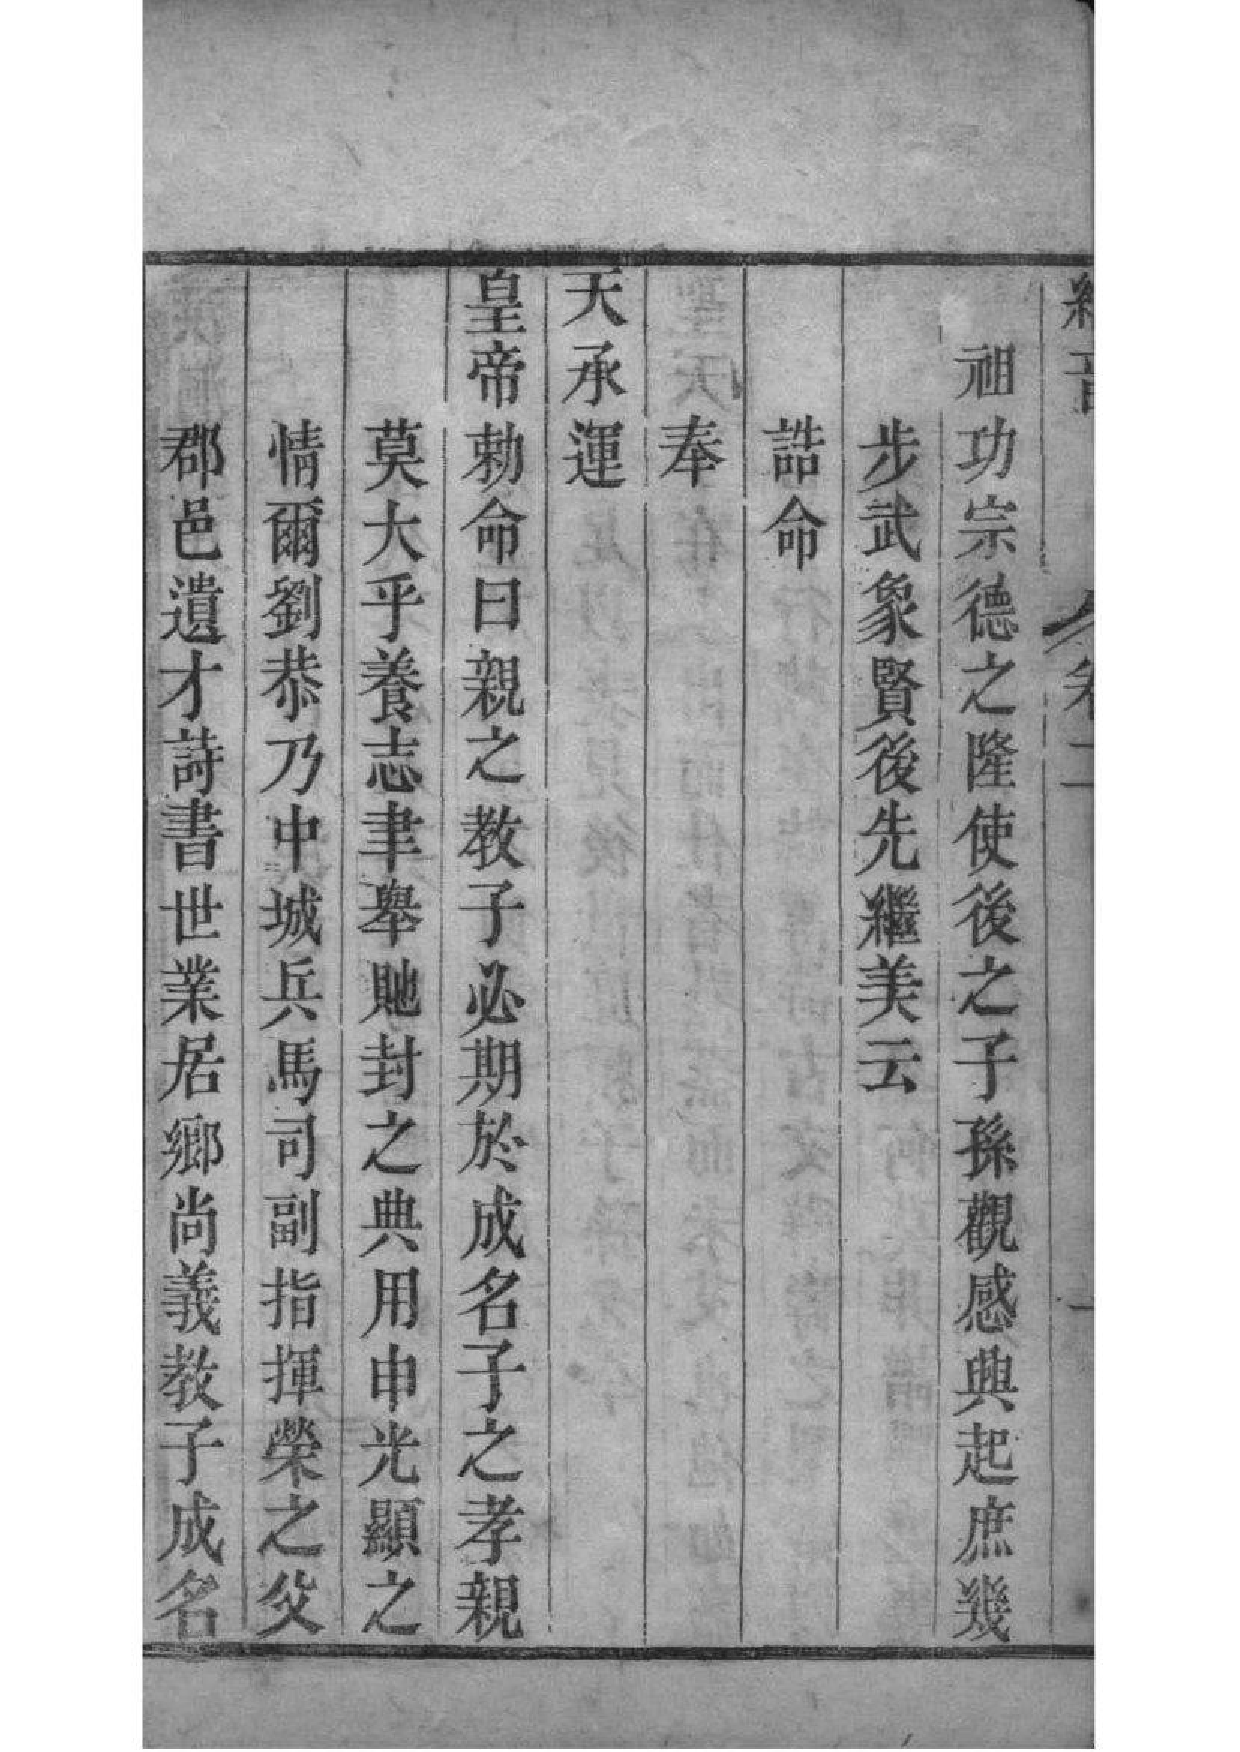 卷二
一
祖功宗德之隆使後之子孫觀感興起庶幾
步武象賢後先繼美云
誥命
奉
天承運
皇帝勅命曰親之教子必期於成名子之孝親
莫大乎養志聿舉貤封之典用申光顯之
情爾劉恭乃中城兵馬司副指揮榮之父
郡邑遺才詩書世業居鄉尚義教子成名